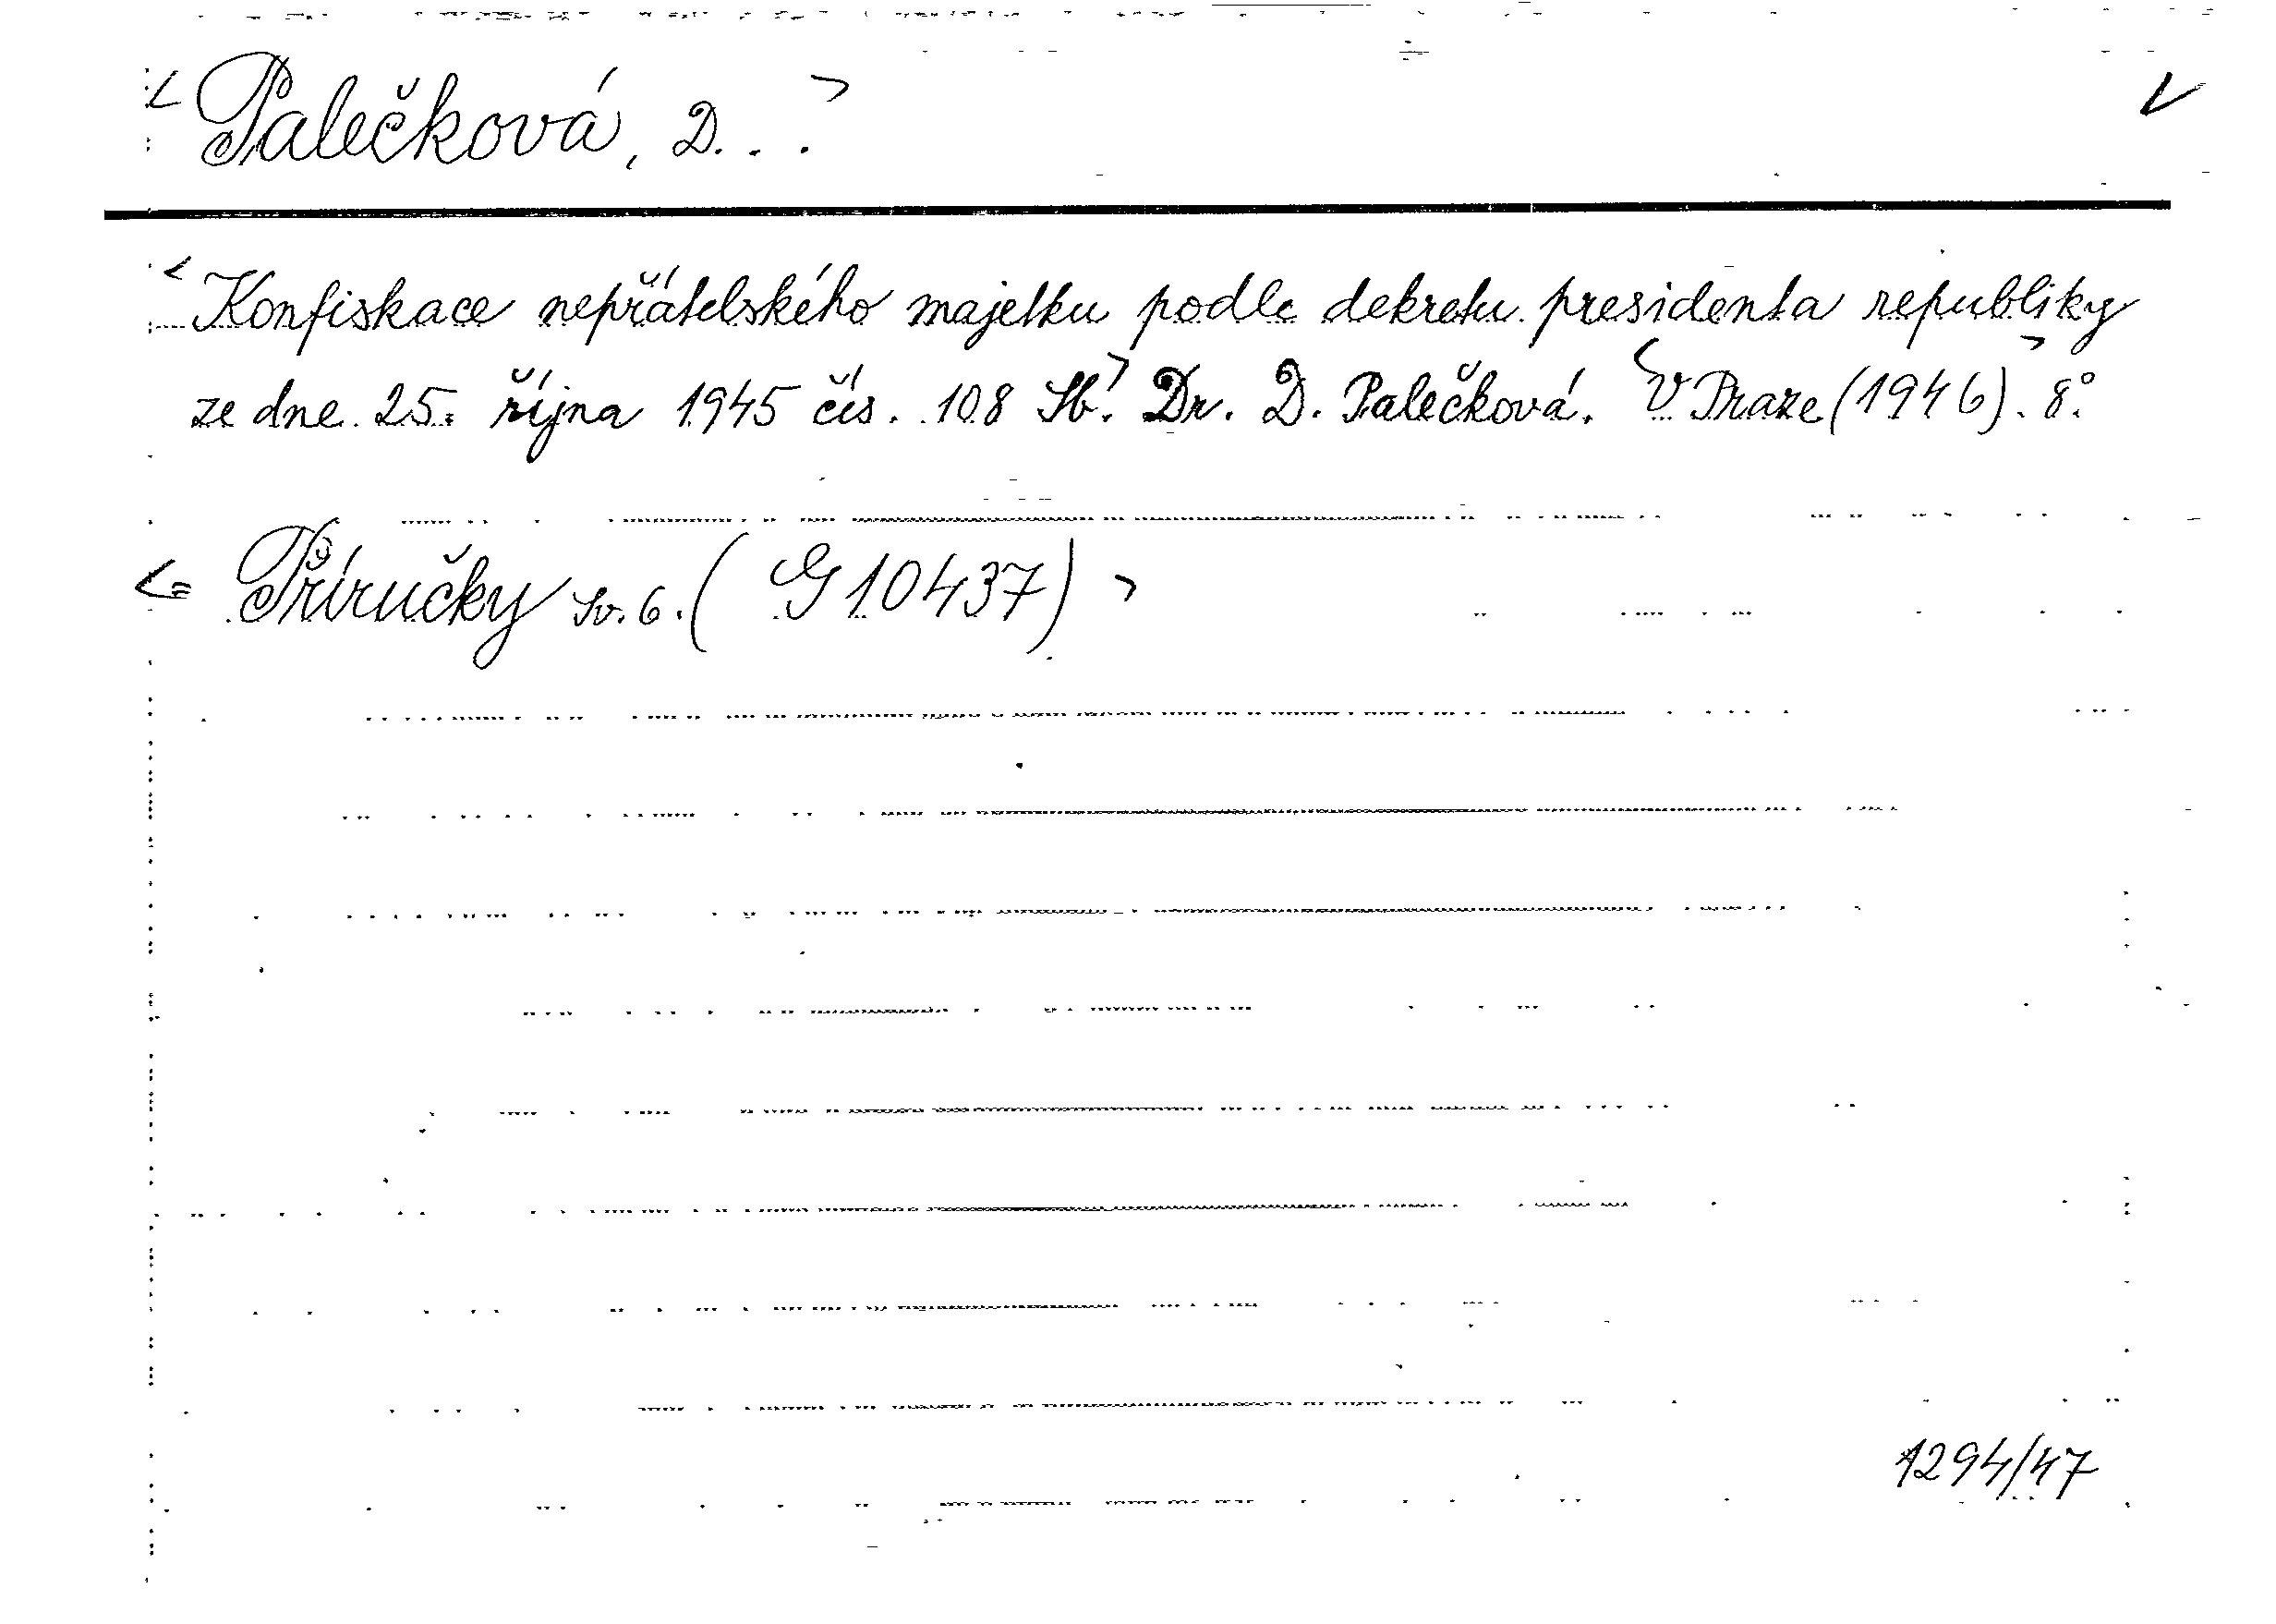 < Palečková, D. . . >
< Konfiskace nepřátelského majetku podle dekretu presidenta republiky
ze dne 25. října 1945 čís. 108 Sb.> Dr. D. Palečková. <V Praze (1946). 8°.>
<= Příručky sv. 6. ( G 10437) >
1294/47